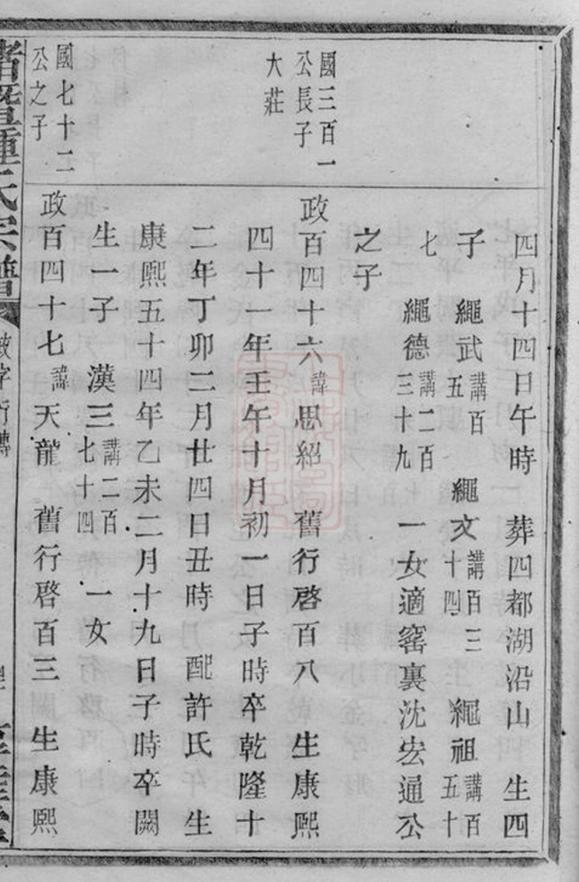 四月十四日午時　葬四都湖沿山　生四
子　繩武講百五　繩文講百三十四　繩祖講百五十
七　繩德講二百三十九　一女適窰裏沈宏通公
之子
國三百一公長子大莊
政百四十六諱思紹　舊行啓百八　生康熙
四十一年壬午十月初一日子時卒乾隆十
二年丁卯二月廿四日丑時　配許氏　生
康熙五十四年乙未二月十九日子時卒闕
生一子　漢三講二百七十四　一女
國七十二公之子
政百四十七諱天龍　舊行啓百三　生康熙
氏宗譜